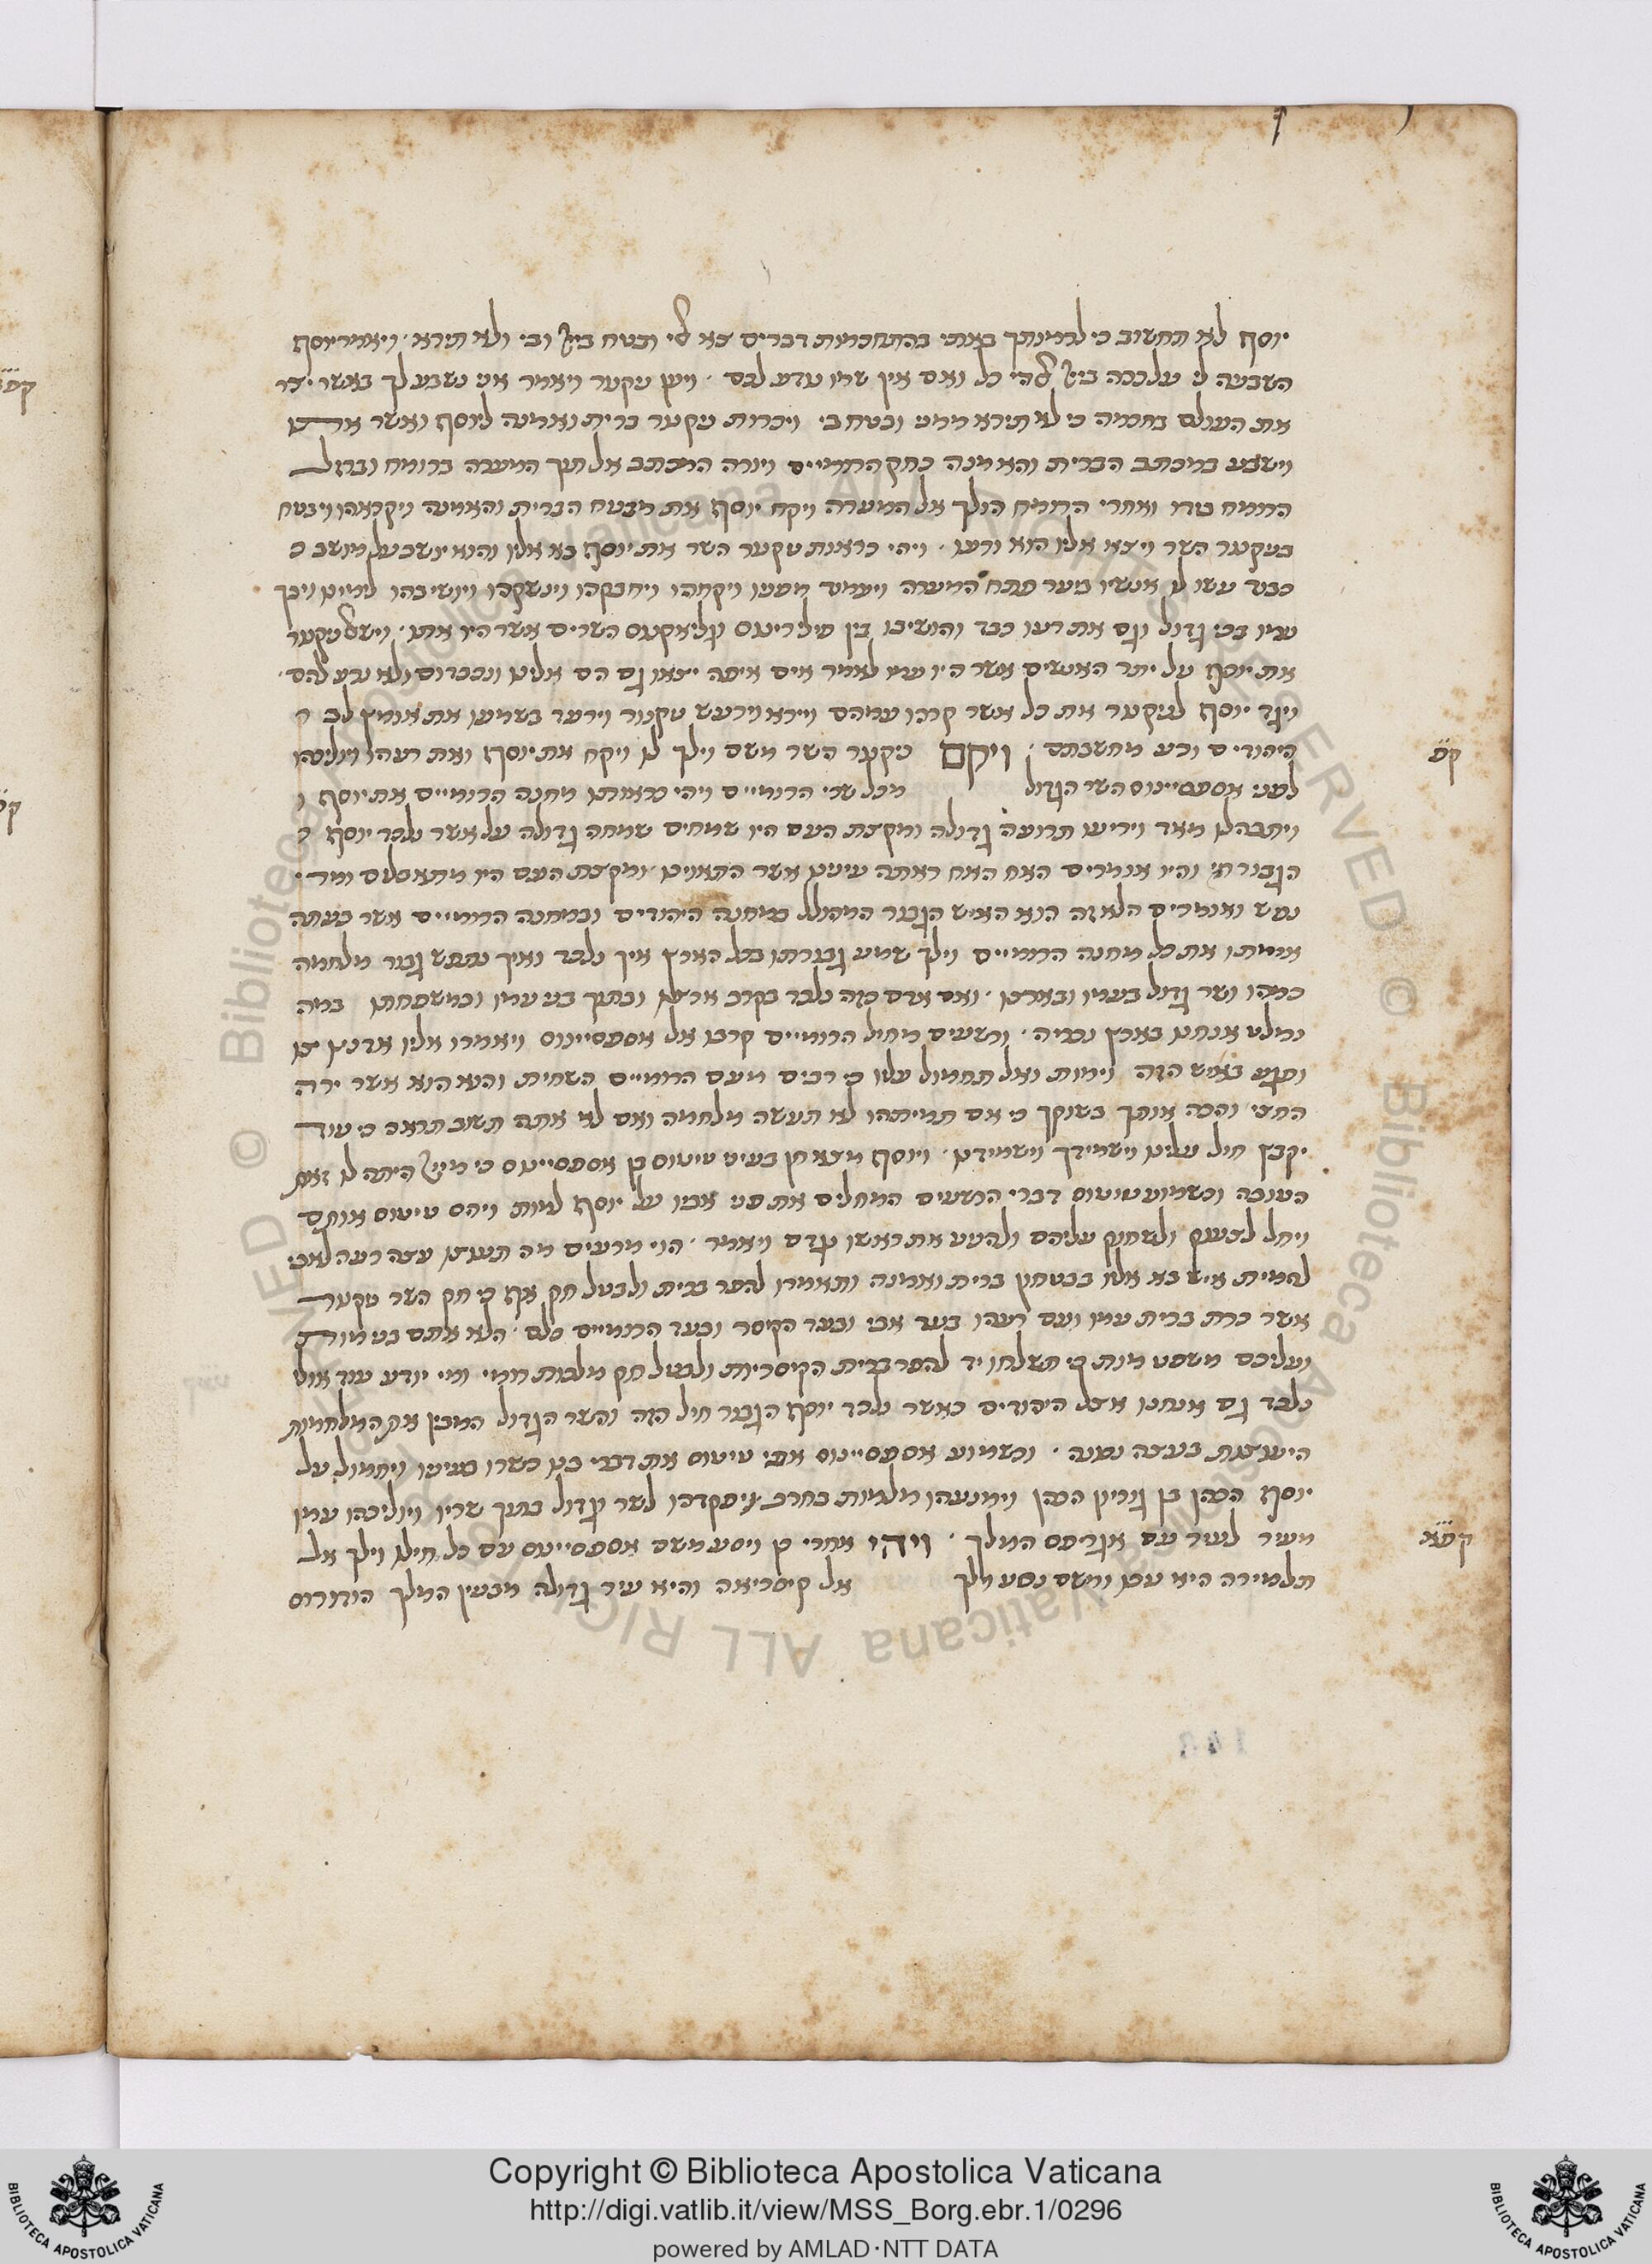 יוסף לא תחשוב כי לרמותך באתי בהתחכמות דברים בא לי ובטח בייי ובי ולא תירא ויאמר יוסף
השבעה לי בייי להי כל ואם אין שמו ויען ניקנור ויאמר אני נשבע לך באשר יצר
את העולם בחכמה כי לא תירא ממני ובטח בי ויכרות ניקנור ברית ואמנה ליוסף ואשר אתו
וישבע במכתב הברית והאמנה כחק הרומיים ויורה המכתב אל תוך המערה ברומח וברזל
הרומח ואחרי הרומח הולך אל המערה ויקח יוסף את מבטח הברית והאמנה ויקראהו ויבטח
בניקנור השר ויצא אליו הוא ורעו ויהי כראות ניקנור השר את יוסף בא אליו והוא יושב על מושב
כבוד עשו לו אנשיו בשער פתח המערה ויעמוד מפניו ויקחהו ויחבקהו וינשקהו ויושיבהו לימינו ויבך
עמו בכי גדול וגם את רעו כבד והושיבו בין השרים אשר היו אתו וישאל ניקנור
את יוסף על יתר האנשים אשר היו עמו לאמר איפה יצאו גם הם אלינו ונכבדום ולא נרע להם
ויגד יוסף לניקנור את כל אשר קרהו עמהם וירא וירעש ניקנור וירעד בשמעו את אומץ לב
היהודים ורע מחשבתם ויקם ניקנור השר משם וילך לו ויקח את יוסף ואת רעהו ויוליכהו
לפני אספסיינוס השר הגדול מכל שרי הרומיים ויהי כראות מחנה הרומיים את יוסף
ויתבהלו מאד ויריעו תרועה גדולה ומקצת העם היו שמחים שמחה גדולה על אשר נלכד יוסף
הגבור והיו אומרים האח האח ראתה עינינו אשר התאוינו ומקצת העם היו מתאבלים
נפש ואומרים הלא זה הוא האיש הגבור המהולל במחנה היהודים ובמחנה הרומיים אשר בעתה
אימתו את כל מחנה הרומיים וילך שמע גבורתו בכל הארץ איך נלכד ואיך נתפש גבור מלחמה
כמהו ושר גדול בעמיו ובארצו ואם אדם כזה נלכד בקרב ארצו ובתוך בני עמיו ובמשפחתו במה
נמלט אנחנו בארץ נכריה ורשעים מחיל הרומיים קרבו אל אספסיינוס ויאמרו אליו אדנינו
ופגע באיש הזה וימות ואל תחמול עליו כי רבים מעם הרומיים השחית והוא הוא אשר ירה
החצי והכה אותך בשוקך כי אם תמיתהו לא תעשה מלחמה ואם לא אתה תשוב תראה כי עוד
יקבץ חיל עלינו וישמידך וישמידנו ויוסף מצא חן בעיני טיטוס בן אספסיינוס כי מייי היתה לו זאת
הטובה וכשמוע טיטוס דברי הרשעים המחלים את פני אביו על יוסף למות ויהס טיטוס אותם
ויחל לצעוק ולשחוק עליהם ולהניע את ראשו עדם ויאמר הוי מרעים מה תועצו עצה רעה לאבי
להמית איש בא אליו במבטחו ברית ואמונה ותאמרו להפר ברית ולבטל חק אף כי חק השר ניקנור
אשר כרת ברית עמו ועם רעהו בעד אבי ובעד הקיסר ובעד הרומיים כלם הלא אתם בני מות
ועליכם משפט מות כי תשלחו יד להפר ברית הקיסריות ולבטל חק מלכות רומי ומי יודע עוד אולי
נלכד גם אנחנו אצל היהודים כאשר נלכד יוסף הגבור חיל הזה והשר הגדול המבין את המלחמות
היועצות בעצה נכונה וכשמוע אספסיינוס אבי טיטוס את דברי בנו כשרו בעיניו ויחמול על
יוסף הכהן בן גוריון הכהן וימנעהו מלמות בחרב ויפקדהו לשר גדול בתוך שריו ויוליכהו עמו
מעיר לעיר עם אגריפס המלך ויהי אחרי כן ויסע משם אספסיינוס עם כל חילו וילך אל
תלמירה היא עכו ומשם נסע וילך אל קיסריאה והיא עיר גדולה מבנין המלך הורודוס
קפ
קפא
Copyright © Biblioteca Apostolica Vaticana
http://digi.vatlib.it/view/MSS_Borg.ebr.1/0296
powered by AMLAD·NTT DATA